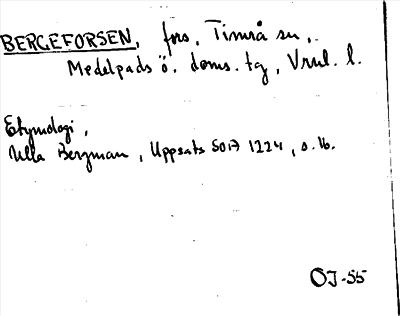 BERGEFORSEN, fors, Timrå sn,
Medelpads ö. doms. tg, Vnl. l.
Etymologi,
Ulla Bergman, Uppsats SOA 1224, s. 16.
ÖJ-55